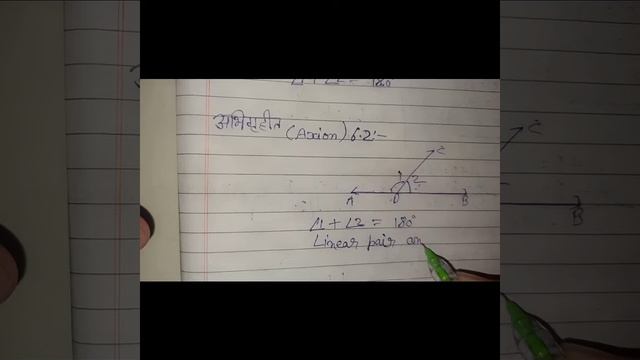 ∠1 + ∠2 = 180°
अभिगृहीत (Axion) 6.2:-
C
1 2
A O B
∠1 + ∠2 = 180°
Linear pair an